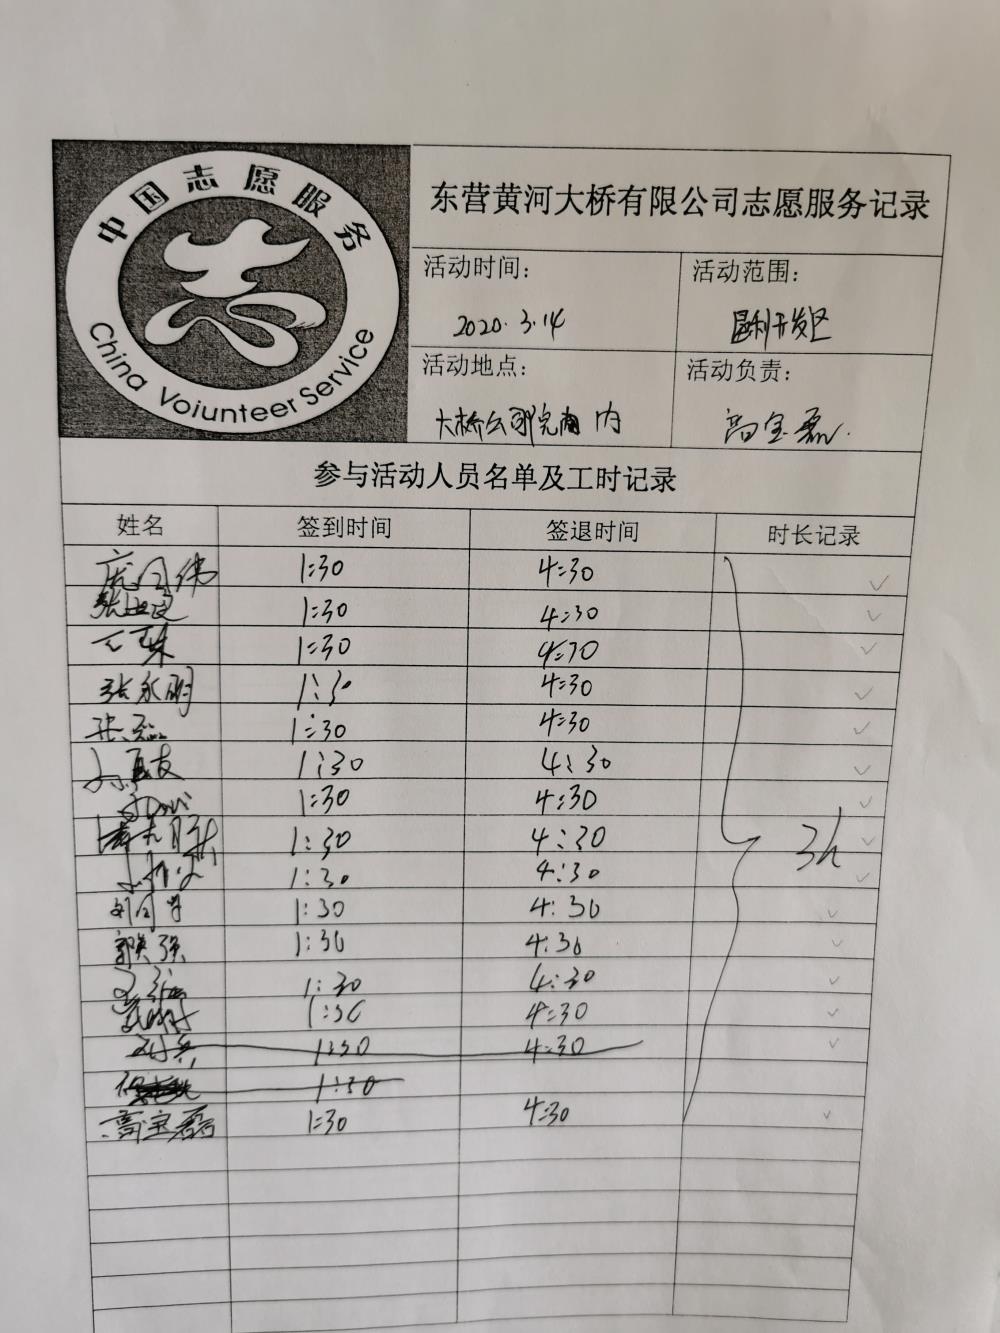 中国志愿服务
China Voiunteer Service
东营黄河大桥有限公司志愿服务记录
活动时间: 活动范围:
2020.3.14 垦利开发区
活动地点: 活动负责:
大桥公司院内 高宝磊.
参与活动人员名单及工时记录
姓名 签到时间 签退时间 时长记录
1:30 4:30
1:30 4:30
1:30 4:30
张永明 1:30 4:30
张磊 1:30 4:30
1:30 4:30
1:30 4:30
1:30 4:30 3h
1:30 4:30
1:30 4:30
1:30 4:30
1:30 4:30
1:30 4:30
1:30 4:30
1:30
高宝磊 1:30 4:30